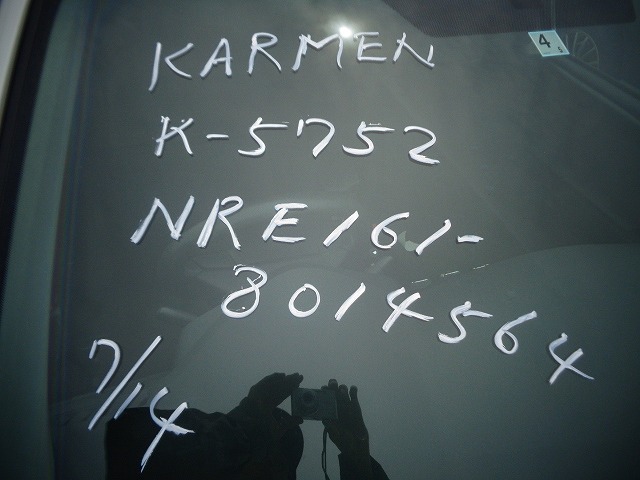 KARMEN
K-5752
NRE161-
8014564
7/14
4